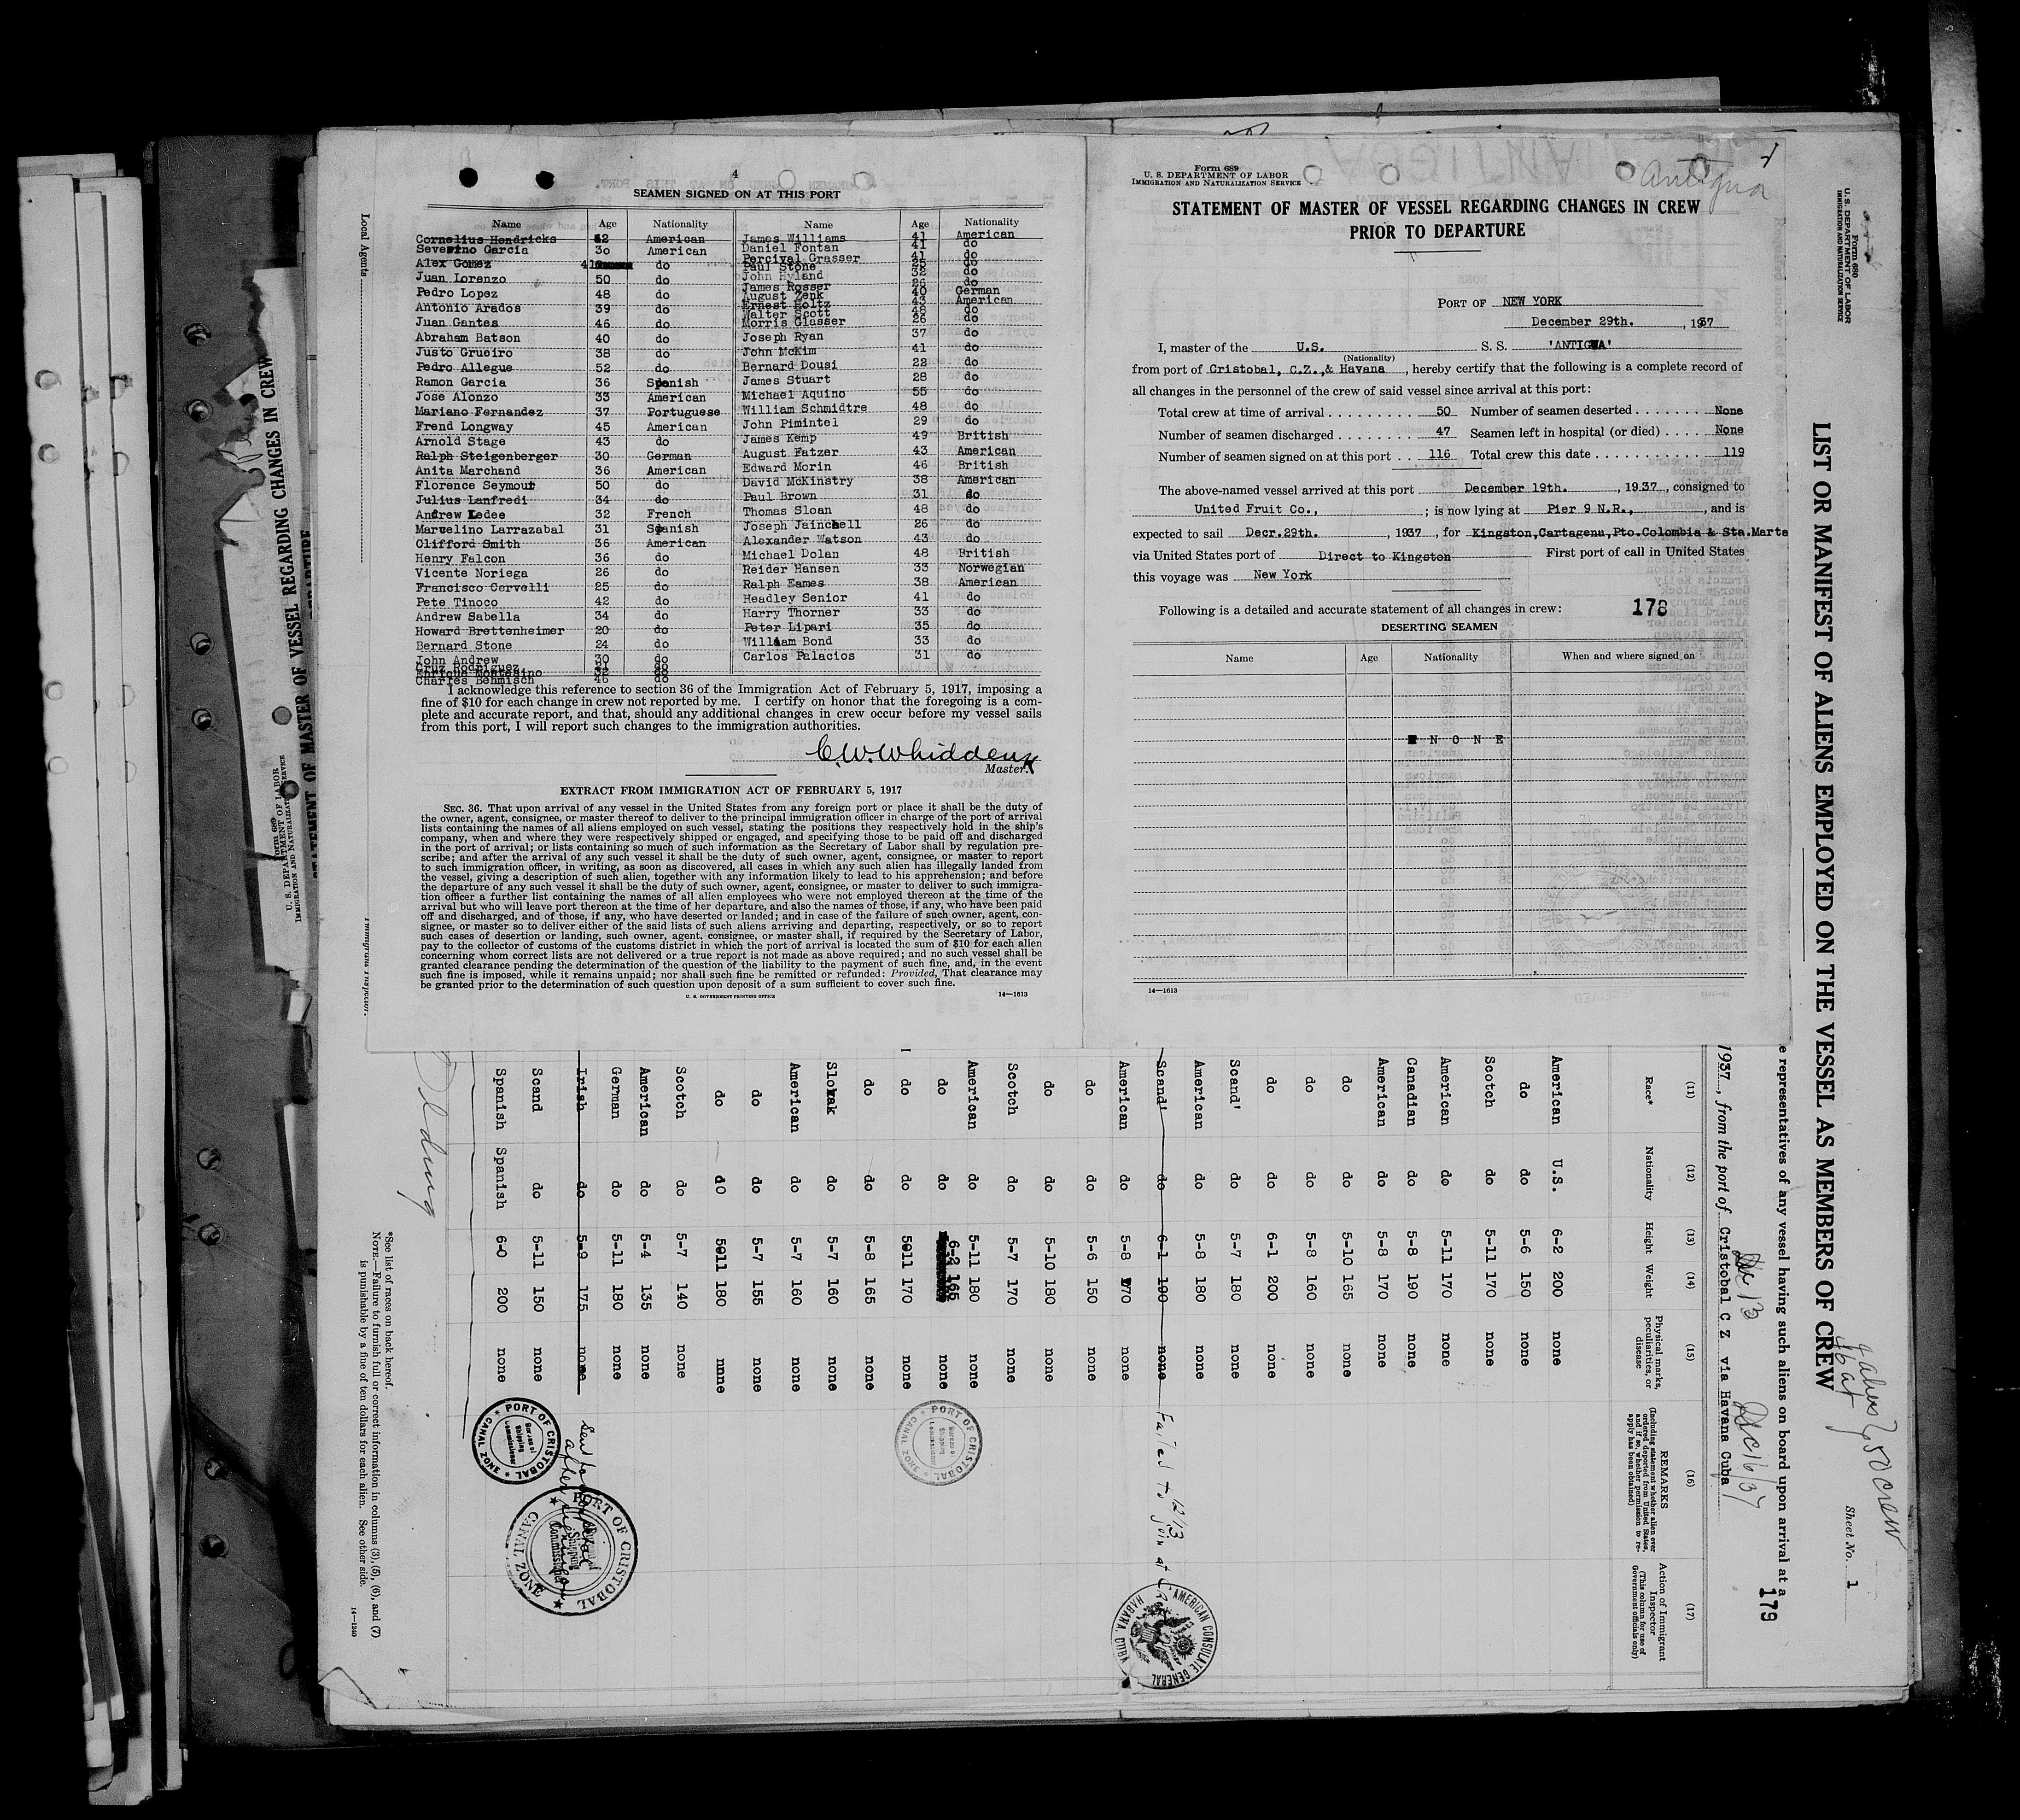 4
SEAMEN SIGNED ON AT THIS PORT
Name Age Nationality Name Age Nationality
Cornelius Hendricks 52 American James Williams 41 American
Severino Garcia 30 American Daniel Fontan 41 do
Alex Gomez 41 do Percival Grasser 41 do
Paul Stone 25 do
Juan Lorenzo 50 do John Hyland 32 do
James Rosser 26 do
Pedro Lopez 48 do August Zenk 40 German
Ernest Holtz 43 American
Antonio Arados 39 do Walter Scott 48 do
Juan Gantes 46 do Morris Glasser 26 do
Abraham Batson 40 do Joseph Ryan 37 do
Justo Grueiro 38 do John McKim 41 do
Pedro Allegue 52 do Bernard Dousi 22 do
Ramon Garcia 36 Spanish James Stuart 28 do
Jose Alonzo 33 American Michael Aquino 55 do
Mariano Fernandez 37 Portuguese William Schmidtre 48 do
Frend Longway 45 American John Pimintel 29 do
Arnold Stage 43 do James Kemp 49 British
Ralph Steigenberger 30 German August Fatzer 43 American
Anita Marchand 36 American Edward Morin 46 British
Florence Seymour 50 do David McKinstry 38 American
Julius Lanfredi 34 do Paul Brown 31 do
Andrew Ledee 32 French Thomas Sloan 48 do
Marvelino Larrazabal 31 Spanish Joseph Jainchell 26 do
Clifford Smith 36 American Alexander Watson 43 do
Henry Falcon 36 do Michael Dolan 48 British
Vicente Noriega 26 do Reider Hansen 33 Norwegian
Francisco Cervelli 25 do Ralph Eames 38 American
Pete Tinoco 42 do Headley Senior 41 do
Andrew Sabella 34 do Harry Thorner 33 do
Howard Brettenheimer 20 do Peter Lipari 35 do
Bernard Stone 24 do William Bond 33 do
John Andrew 30 do Carlos Palacios 31 do
Cruz Rodriguez do
Enrique Montesino 32 do
Charles Behmisch 46 do
I acknowledge this reference to section 36 of the Immigration Act of February 5, 1917, imposing a
fine of $10 for each change in crew not reported by me. I certify on honor that the foregoing is a com-
plete and accurate report, and that, should any additional changes in crew occur before my vessel sails
from this port, I will report such changes to the immigration authorities.
C.W. Whidden
Master.
EXTRACT FROM IMMIGRATION ACT OF FEBRUARY 5, 1917
SEC. 36. That upon arrival of any vessel in the United States from any foreign port or place it shall be the duty of
the owner, agent, consignee, or master thereof to deliver to the principal immigration officer in charge of the port of arrival
lists containing the names of all aliens employed on such vessel, stating the positions they respectively hold in the ship's
company, when and where they were respectively shipped or engaged, and specifying those to be paid off and discharged
in the port of arrival; or lists containing so much of such information as the Secretary of Labor shall by regulation pre-
scribe; and after the arrival of any such vessel it shall be the duty of such owner, agent, consignee, or master to report
to such immigration officer, in writing, as soon as discovered, all cases in which any such alien has illegally landed from
the vessel, giving a description of such alien, together with any information likely to lead to his apprehension; and before
the departure of any such vessel it shall be the duty of such owner, agent, consignee, or master to deliver to such immigra-
tion officer a further list containing the names of all alien employees who were not employed thereon at the time of the
arrival but who will leave port thereon at the time of her departure, and also the names of those, if any, who have been paid
off and discharged, and of those, if any, who have deserted or landed; and in case of the failure of such owner, agent, con-
signee, or master so to deliver either of the said lists of such aliens arriving and departing, respectively, or so to report
such cases of desertion or landing, such owner, agent, consignee, or master shall, if required by the Secretary of Labor,
pay to the collector of customs of the customs district in which the port of arrival is located the sum of $10 for each alien
concerning whom correct lists are not delivered or a true report is not made as above required; and no such vessel shall be
granted clearance pending the determination of the question of the liability to the payment of such fine, and, in the event
such fine is imposed, while it remains unpaid; nor shall such fine be remitted or refunded: Provided, That clearance may
be granted prior to the determination of such question upon deposit of a sum sufficient to cover such fine.
U. S. GOVERNMENT PRINTING OFFICE 14—1613
Form 689
U. S. DEPARTMENT OF LABOR
IMMIGRATION AND NATURALIZATION SERVICE
Antigua
STATEMENT OF MASTER OF VESSEL REGARDING CHANGES IN CREW
PRIOR TO DEPARTURE
PORT OF NEW YORK
December 29th. , 1937
I, master of the U.S. S. S. 'ANTIGUA'
(Nationality)
from port of Cristobal, C.Z.,& Havana , hereby certify that the following is a complete record of
all changes in the personnel of the crew of said vessel since arrival at this port:
Total crew at time of arrival . . . . . . . . . 50 Number of seamen deserted . . . . . . . None
Number of seamen discharged . . . . . . . . 47 Seamen left in hospital (or died) . . . . None
Number of seamen signed on at this port . . 116 Total crew this date . . . . . . . . . . . . 119
The above-named vessel arrived at this port December 19th. , 1937 , consigned to
United Fruit Co., ; is now lying at Pier 9 N.R., , and is
expected to sail Decr.29th. , 1937 , for Kingston,Cartagena,Pto.Colombia & Sta.Marta
via United States port of Direct to Kingston First port of call in United States
this voyage was New York
Following is a detailed and accurate statement of all changes in crew: 178
DESERTING SEAMEN
Name Age Nationality When and where signed on
N O N E
14—1613
Local Agents
Immigrant Inspector.
Form 689
U. S. DEPARTMENT OF LABOR
IMMIGRATION AND NATURALIZATION SERVICE
STATEMENT OF MASTER OF VESSEL REGARDING CHANGES IN CREW
Form 680
U. S. DEPARTMENT OF LABOR
IMMIGRATION AND NATURALIZATION SERVICE
Sheet No. 1
50 crew
LIST OR MANIFEST OF ALIENS EMPLOYED ON THE VESSEL AS MEMBERS OF CREW
representatives of any vessel having such aliens on board upon arrival at a
179
Dec 13 Dec 16/37
1937, from the port of Cristobal C Z via Havana Cuba
(11) (12) (13) (14) (15) (16) (17)
Race* Nationality Height Weight Physical marks, peculiarities, or disease REMARKS (Including statement whether alien ever ordered deported from United States, and if so, whether permission to reapply has been obtained) Action of Immigrant Inspector (This column for use of Government officials only)
American U.S. 6-2 200 none
do do 5-6 150 none
Scotch do 5-11 170 none
American do 5-11 170 none
Canadian do 5-8 190 none
American do 5-8 170 none
do do 5-10 165 none
do do 5-8 160 none
do do 6-1 200 none
Scand' do 5-7 180 none
American do 5-8 180 none
Scand' do 6-1 190 none Failed to join at 12/13
American do 5-8 170 none
do do 5-6 150 none
do do 5-10 180 none
Scotch do 5-7 170 none
American do 5-11 180 none
do do 6-2 165 none
do do 5011 170 none
do do 5-8 165 none
Slovak do 5-7 160 none
American do 5-7 160 none
do do 5-7 155 none
do d0 5011 180 nnne
Scotch do 5-7 140 none
American do 5-4 135 none
German do 5-11 180 none
Irish do 5-9 175 none Sent to hospital
Scand do 5-11 150 none
Spanish Spanish 6-0 200 none
PORT OF CRISTOBAL
CANAL ZONE
Shipping Commissioner
PORT OF CRISTOBAL
CANAL ZONE
Shipping Commissioner
PORT OF CRISTOBAL
CANAL ZONE
Shipping Commissioner
AMERICAN CONSULATE GENERAL
HABANA, CUBA
*See list of races on back hereof.
NOTE.—Failure to furnish full or correct information in columns (3), (5), (6), and (7)
is punishable by a fine of ten dollars for each alien. See other side.
14—1240